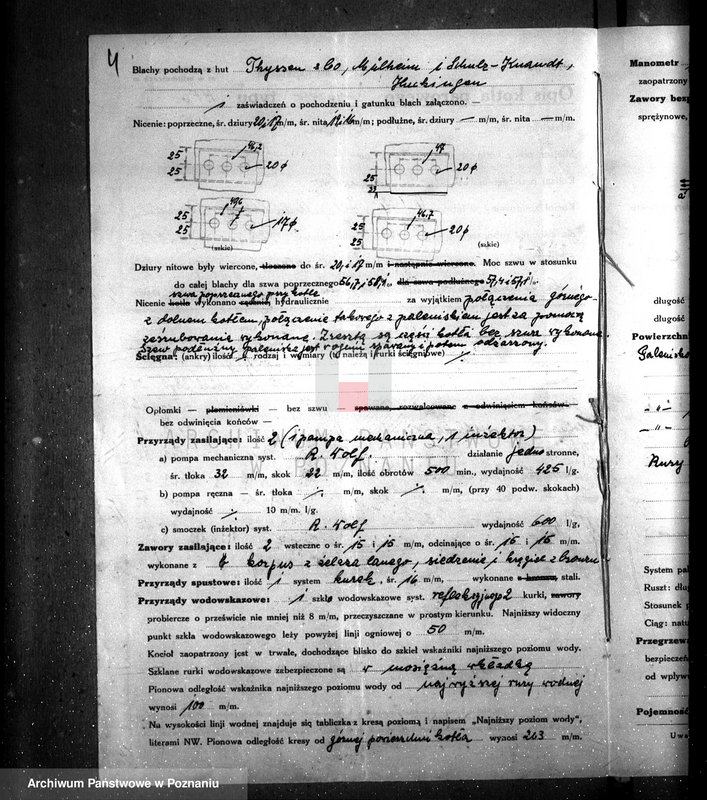 4
Blachy pochodzą z hut Thyssen & Co, Mülheim i Schulz-Knaudt,
Huckingen
1 zaświadczeń o pochodzeniu i gatunku blach załączono. —
Nicenie: poprzeczne, śr. dziury 20, i 17 m/m, śr. nita 19, i 16 m/m; podłużne, śr. dziury — m/m, śr. nita — m/m.
25 25 48,2 20 φ
47 25 20 φ
25 25 49,6 17 φ (szkic)
25 25 46,7 20 φ (szkic)
Dziury nitowe były wiercone, tłoczone do śr. 20, i 17 m/m i następnie wiercone. Moc szwu w stosunku
do całej blachy dla szwa poprzecznego 56,7 i 58,1 dla szwa podłużnego 57,4 i 57,1 %.
szwa poprzecznego przy kotle
Nicenie kotła wykonano ręcznie, hydraulicznie za wyjątkiem połączenia górnego
z dolnem kotłem, połączenie takowego z paleniskiem jest za pomocą
ześrubowania wykonane. Zresztą są części kotła bez szwu wykonane
Szew podłużny paleniska jest w ogniu spawany i potem odżarzony.
Ściągna: (ankry) ilość rodzaj i wymiary (tu należą i rurki ściągniowe) ./.
Opłomki — płomieniówki — bez szwu — spawane, rozwalcowane z odwinięciem końców —
bez odwinięcia końców —
Przyrządy zasilające: ilość 2 (1 pompa mechaniczna, 1 inżektor)
a) pompa mechaniczna syst. R. Wolf. działanie jedno stronne,
śr. tłoka 32 m/m, skok 22 m/m, ilość obrotów 500 min., wydajność 425 l/g.
b) pompa ręczna — śr. tłoka ./. m/m, skok ./. m/m, (przy 40 podw. skokach)
wydajność ./. 10 m/m. l/g.
c) smoczek (inżektor) syst. R. Wolf wydajność 600 l/g,
Zawory zasilające: ilość 2 wsteczne o śr. 15 i 15 m/m, odcinające o śr. 15 i 15 m/m.
wykonane z korpus z żelaza lanego, siedzenie i krążek z bronzu
Przyrządy spustowe: ilość 1 system kurek, śr. 16 m/m, wykonane z bronzu, stali.
Przyrządy wodowskazowe: 1 szkło wodowskazowe syst. refleksyjnego 2 kurki, zawory
probiercze o prześwicie nie mniej niż 8 m/m, przeczyszczane w prostym kierunku. Najniższy widoczny
punkt szkła wodowskazowego leży powyżej linji ogniowej o 50 m/m.
Kocioł zaopatrzony jest w trwałe, dochodzące blisko do szkieł wskaźniki najniższego poziomu wody.
Szklane rurki wodowskazowe zabezpieczone są w mosiężną wkładkę
Pionowa odległość wskaźnika najniższego poziomu wody od najwyższej rury wodnej
wynosi 100 m/m.
Na wysokości linji wodnej znajduje się tabliczka z kresą poziomą i napisem „Najniższy poziom wody",
literami NW. Pionowa odległość kresy od górnej powierzchni kotła wynosi 263 m/m.
Manometr
zaopatrzony
Zawory bezp
sprężynowe,
długość
długość
Powierzchn
Palenisko
Rury
System pal
Ruszt: dłu
Stosunek p
Ciąg: natu
Przegrzew
bezpieczeń
od wpływ
Pojemność
Uwa
ARCHIWUM PAŃSTWOWE
W POZNANIU
Archiwum Państwowe w Poznaniu